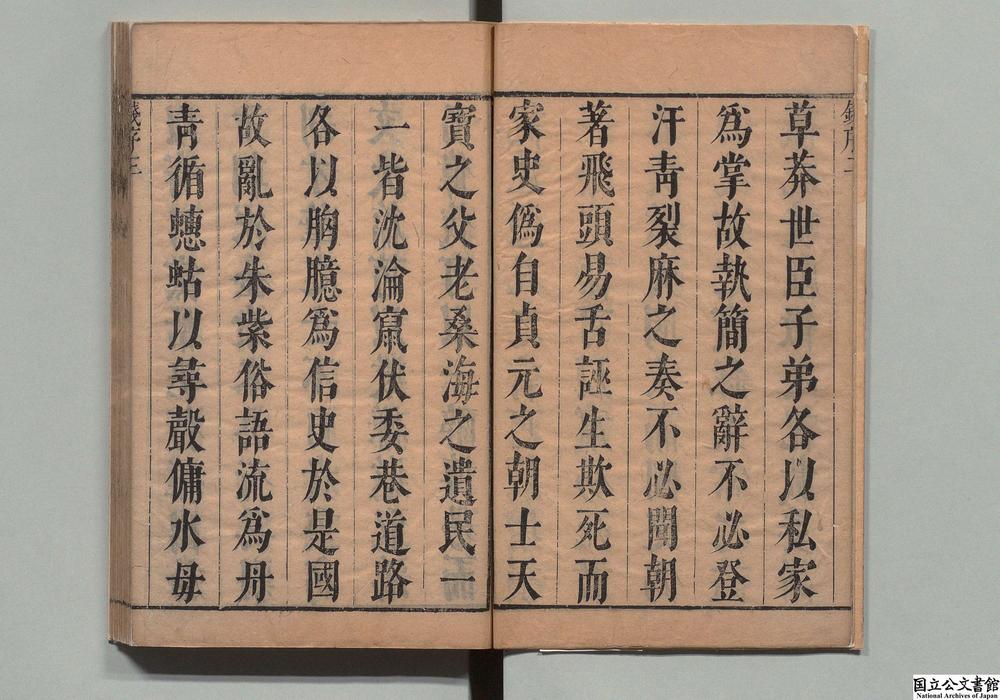 錢序二
草莽世臣子弟各以私家
爲掌故執簡之辭不必登
汗靑裂麻之奏不必聞朝
著飛頭易舌誣生欺死而
家史僞自貞元之朝士天
寶之父老桑海之遺民一
一皆沈淪竄伏委巷道路
各以胸臆爲信史於是國
故亂於朱紫俗語流爲丹
靑循蟪蛄以尋聲傭水母
錢序三
国立公文書館
National Archives of Japan